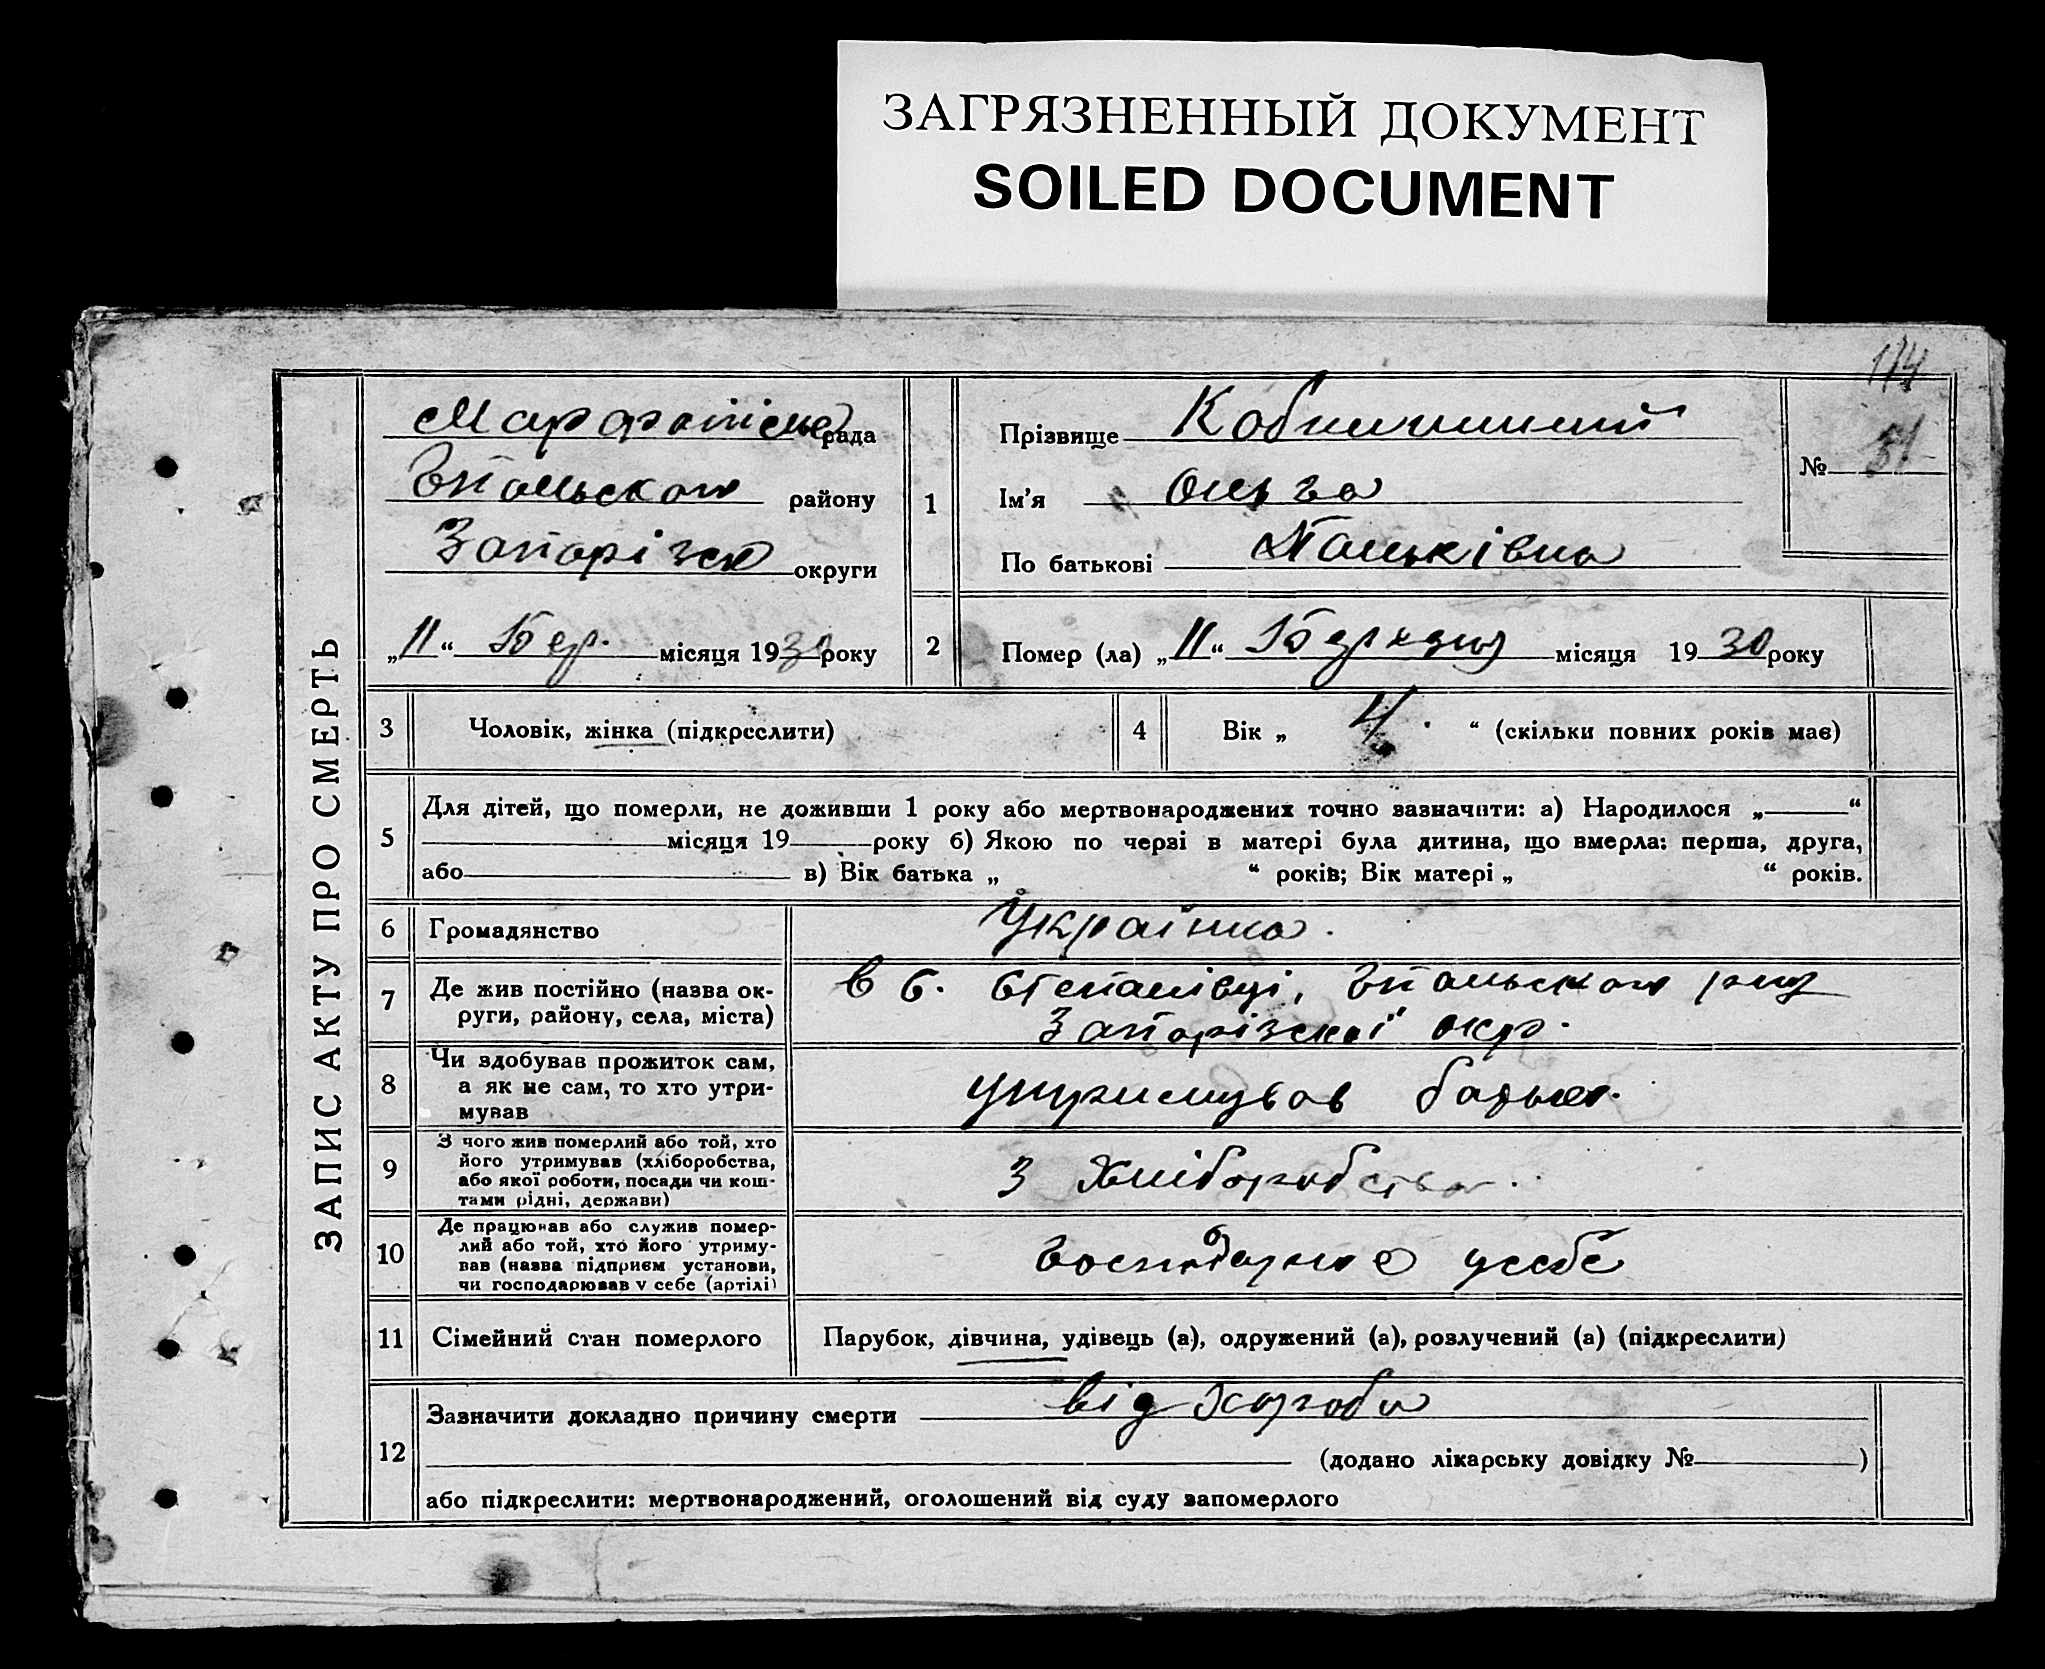 ЗАГРЯЗНЕННЫЙ ДОКУМЕНТ
SOILED DOCUMENT
114
ЗАПИС АКТУ ПРО СМЕРТЬ
рада
району
Запорізьк округи
„11“ Бер. місяця 1930 року
1
Прізвище
Ім'я Ольга
По батькові Паньківна
№ 31
2
Помер (ла) „11“ Березня місяця 1930 року
3 Чоловік, жінка (підкреслити)
4 Вік „4.“ (скільки повних років має)
5 Для дітей, що померли, не доживши 1 року або мертвонароджених точно зазначити: а) Народилося „ “
місяця 19 року б) Якою по черзі в матері була дитина, що вмерла: перша, друга,
або в) Вік батька „ “ років; Вік матері „ “ років.
6 Громадянство Українка.
7 Де жив постійно (назва ок-
руги, району, села, міста)
в с. Степанівці,
Запорізської окр.
8 Чи здобував прожиток сам,
а як не сам, то хто утри-
мував
утримував батько.
9 З чого жив померлий або той, хто
його утримував (хліборобства,
або якої роботи, посади чи кош-
тами рідні, держави)
З хліборобства.
10 Де працював або служив помер-
лий або той, хто його утриму-
вав (назва підприєм установи,
чи господарював у себе (артілі)
усебе
11 Сімейний стан померлого Парубок, дівчина, удівець (а), одружений (а), розлучений (а) (підкреслити)
12 Зазначити докладно причину смерти від хороби
(додано лікарську довідку № )
або підкреслити: мертвонароджений, оголошений від суду запомерлого